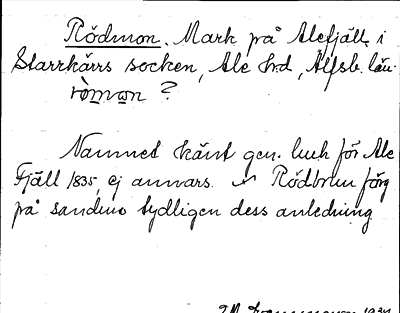 Rödmon. Mark på Alefjäll i
Starrkärrs socken, Ale hrd, Älfsb. län.
ròmon ?
Namnet känt gen. luh för Ale
Fjäll 1835, ej annars. Rödbrun färg
på sanden tydligen dess anledning
1934